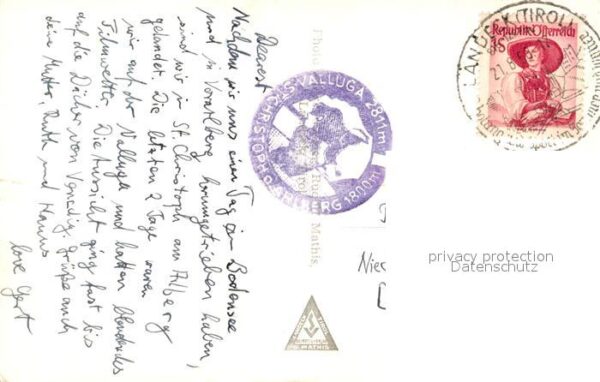 Dearest
Nachdem wir uns einen Tag am Bodensee
und in Vorarlberg herumgetrieben haben,
sind wir in St. Christoph am Arlberg
gelandet. Die letzten 2 Tage waren
wir auf der Valluga und hatten blendendes
Filmwetter. Die Aussicht ging fast bis
auf die Dächer von Venedig. Grüße auch
deine Mutter, Ruth und Hanns
love Gert
VALLUGA 2811m
ARLBERG 1800m
Mathis.
MATHIS
LANDECK (TIROL)
Republik Österreich
Nie
privacy protection
Datenschutz